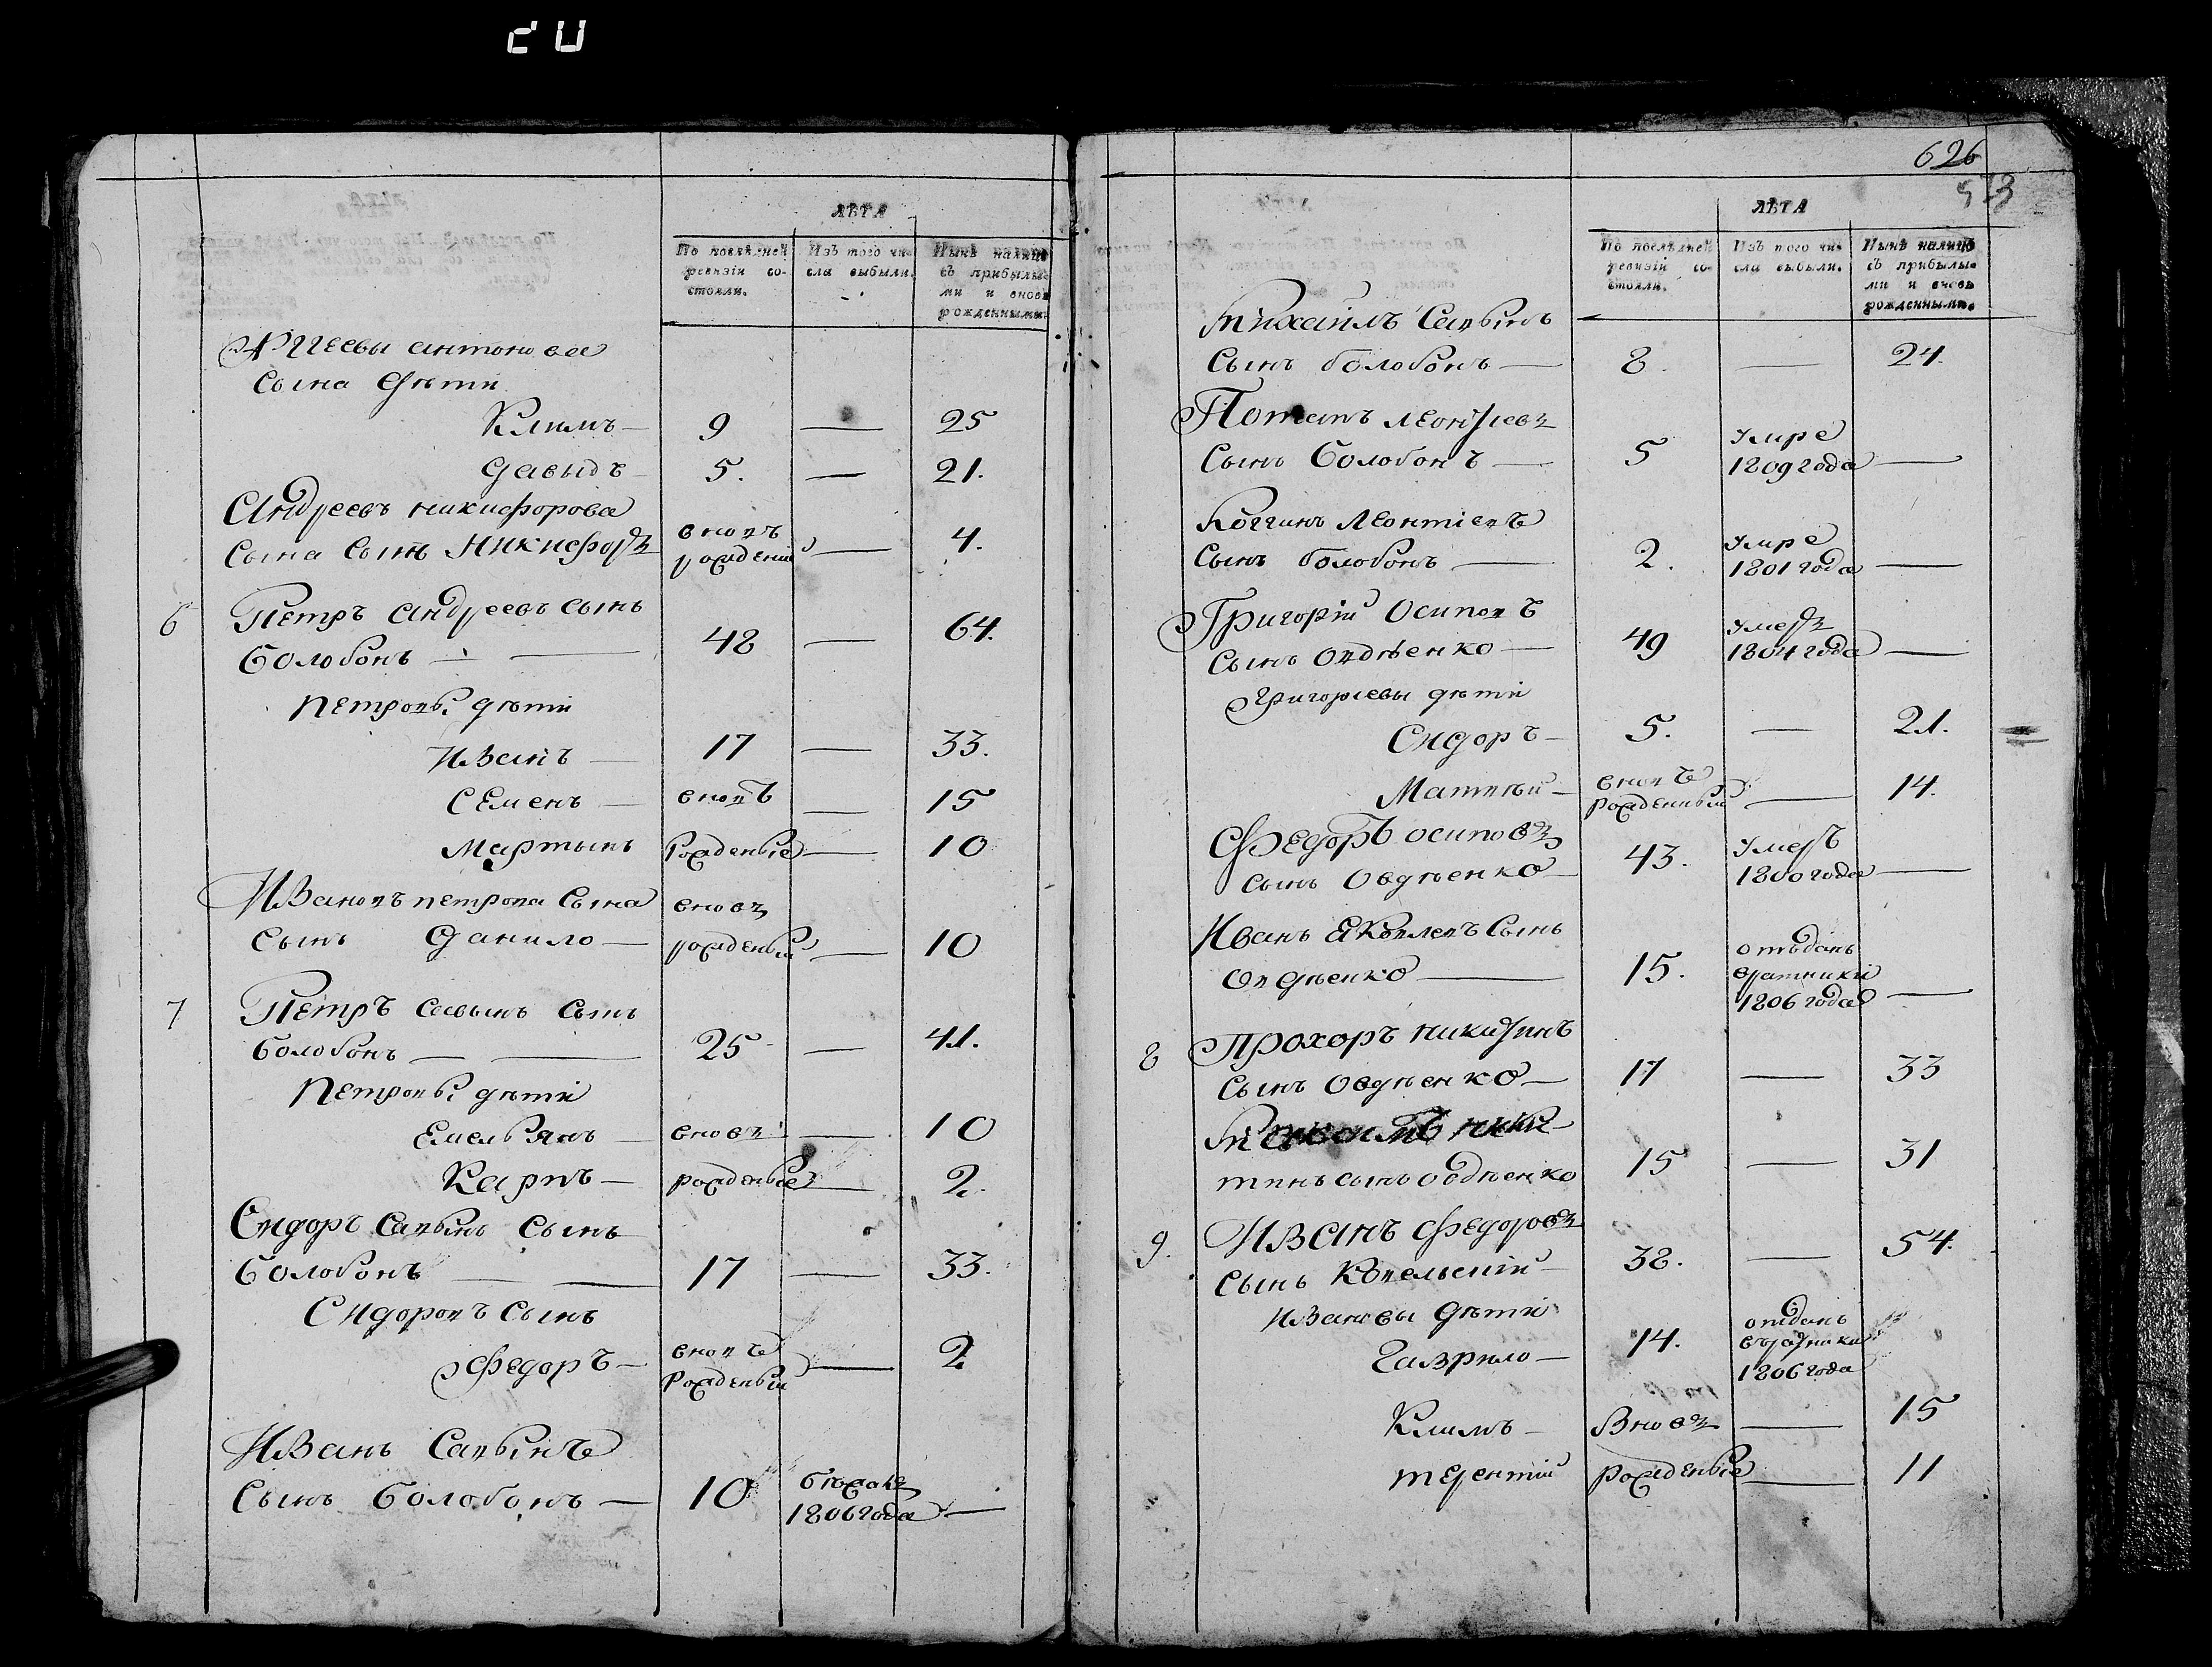 20
ЛѢТА
По послѣдней ревизіи состояли.
Изъ того числа выбыли.
Нынѣ налицо съ прибылыми и вновь рожденными.
антонова
Сына дѣти
Климъ — 9 — 25
Давыдъ — 5. — 21.
Андреевъ никифорова вновъ
Сына Сынъ Никифоръ рожденій — 4.
6 Петръ андреевъ сынъ
болобонъ — 48 — 64.
петровы дѣти
Иванъ — 17 — 33.
Семенъ — вновъ — 15
Мартынъ рожденые — 10
Ивановъ петрова Сына вновъ
Сынъ Данило — рожденый — 10
7 Петръ савынъ сынъ
болобонъ — 25 — 41.
петровы дѣти
Емельянъ — вновъ — 10
Карпъ — рожденые — 2.
Сидоръ Савынъ Сынъ
болобонъ — 17 — 33.
Сидоровъ Сынъ
Федоръ — вновъ рожденый — 2
Иванъ Савынъ
Сынъ болобонъ — 10 бѣжалъ 1806 года —
626
ЛѢТА
По послѣдней ревизіи состояли.
Изъ того числа выбыли.
Нынѣ налицо съ прибылыми и вновь рожденными.
Михаилъ Савынъ
Сынъ болобонъ — 8. — 24.
Потапъ леонтіевъ
Сынъ болобонъ — 5 умре 1809 года —
Леонтіевъ
Сынъ болобонъ — 2. умре 1801 года —
Григорій Осиповъ
Сынъ овдѣенко — 49 умеръ 1804 года —
Григоріевы дѣти
Сидоръ — 5. — 21.
Матвѣй — вновъ рожденный — 14.
Федоръ осиповъ
сынъ Овдѣенко 43. умеръ 1800 года —
Иванъ Яковлевъ Сынъ
овдѣенко — 15. отъданъ вратники 1806 года —
8 Прохоръ никитинъ
Сынъ овдѣенко — 17 — 33
ники-
тинъ сынъ овдѣенко 15 — 31
9. Иванъ Федоровъ
Сынъ Ковельскій — 38. — 54.
ивановы дѣти
Гаврило — 14. отданъ въратники 1806 года
Климъ — Вновъ — 15
терентій рожденые — 11